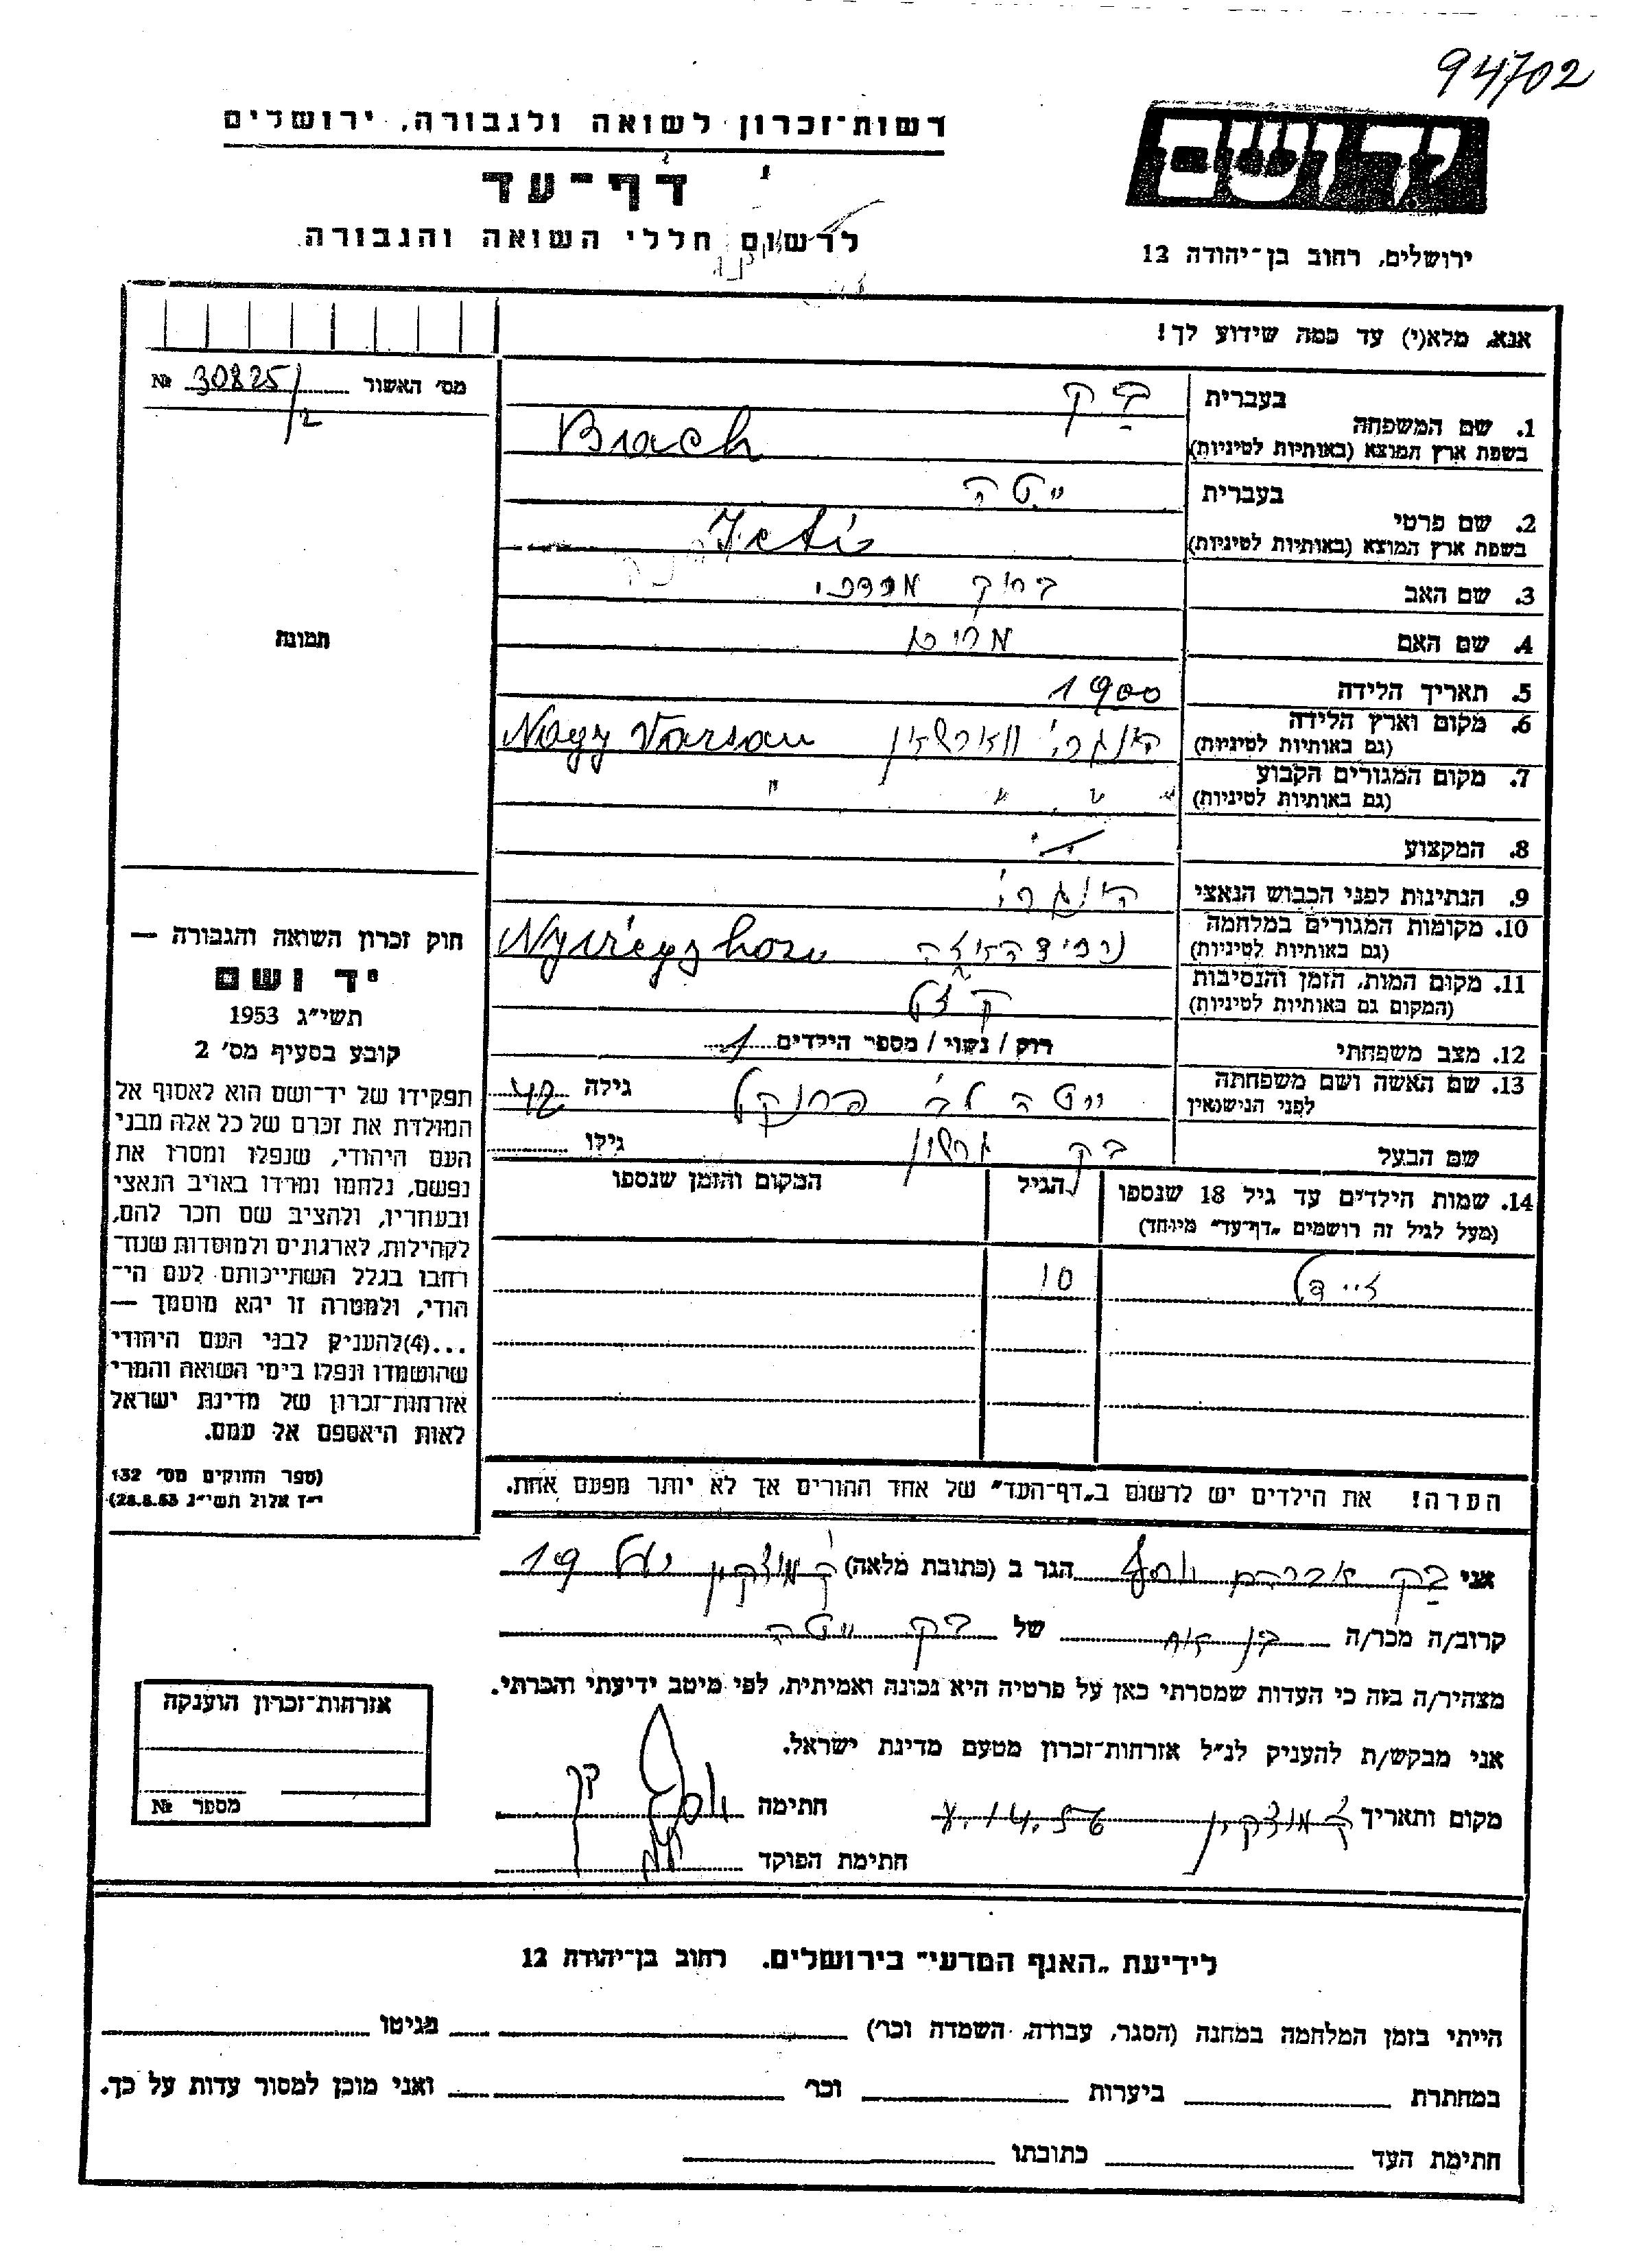 94702
ידושם
רשות־זכרון לשואה ולגבורה, ירושלים
דף־עד
לרשום חללי השואה והגבורה
ירושלים, רחוב בן־יהודה 12
אנא, מלא(י) עד כמה שידוע לך!
מס׳ האשור 30825/2 №
תמונה
1. שם המשפחה בעברית בק
בשפת ארץ המוצא (באותיות לטיניות) Brach
2. שם פרטי בעברית יטה
בשפת ארץ המוצא (באותיות לטיניות)
3. שם האב מרדכי
4. שם האם
5. תאריך הלידה 1900
6. מקום וארץ הלידה (גם באותיות לטיניות) הונגרי׳ ווארשאן Nagy Varsan
7. מקום המגורים הקבוע (גם באותיות לטיניות) " " " "
8. המקצוע
9. הנתינות לפני הכבוש הנאצי הונגרי׳
10. מקומות המגורים במלחמה (גם באותיות לטיניות)
11. מקום המות, הזמן והנסיבות (המקום גם באותיות לטיניות)
12. מצב משפחתי רוק / נשוי / מספר הילדים 1
13. שם האשה ושם משפחתה לפני הנישואין יטה לב׳ פרנקל גילה 42
שם הבעל בק גרשון גילו
14. שמות הילדים עד גיל 18 שנספו (מעל לגיל זה רושמים „דף־עד” מיוחד) הגיל המקום והזמן שנספו
זיידל 10
הערה! את הילדים יש לרשום ב„דף־העד” של אחד ההורים אך לא יותר מפעם אחת.
חוק זכרון השואה והגבורה —
יד ושם
תשי״ג 1953
קובע בסעיף מס׳ 2
תפקידו של יד־ושם הוא לאסוף אל
המולדת את זכרם של כל אלה מבני
העם היהודי, שנפלו ומסרו את
נפשם, נלחמו ומרדו באויב הנאצי
ובעוזריו, ולהציב שם וזכר להם,
לקהילות, לארגונים ולמוסדות שנח־
רבו בגלל השתייכותם לעם הי־
הודי, ולמטרה זו יהא מוסמך —
...(4) להעניק לבני העם היהודי
שהושמדו ונפלו בימי השואה והמרי
אזרחות־זכרון של מדינת ישראל
לאות היאספם אל עמם.
(ספר החוקים מס׳ 132
י״ז אלול תשי״ג 28.8.53)
אני בק אברהם יוסף הגר ב (כתובת מלאה) ק׳ מוצקין 19
קרוב/ה מכר/ה בן דוד של בק יטה
מצהיר/ה בזה כי העדות שמסרתי כאן על פרטיה היא נכונה ואמיתית, לפי מיטב ידיעתי והכרתי.
אני מבקש/ת להעניק לנ״ל אזרחות־זכרון מטעם מדינת ישראל.
מקום ותאריך ק׳ מוצקין חתימה
חתימת הפוקד
אזרחות־זכרון הוענקה
מספר №
לידיעת „האגף המדעי” בירושלים. רחוב בן־יהודה 12
הייתי בזמן המלחמה במחנה (הסגר, עבודה, השמדה וכר׳) בגיטו
במחתרת ביערות וכר׳ ואני מוכן למסור עדות על כך.
חתימת העד כתובתו